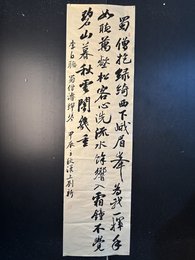 蜀僧抱綠綺西下峨眉峯為我一揮手
如聽萬壑松客心洗流水餘響入霜鐘不覺
碧山暮秋雲闇幾重
李白聽蜀僧濬彈琴 甲辰